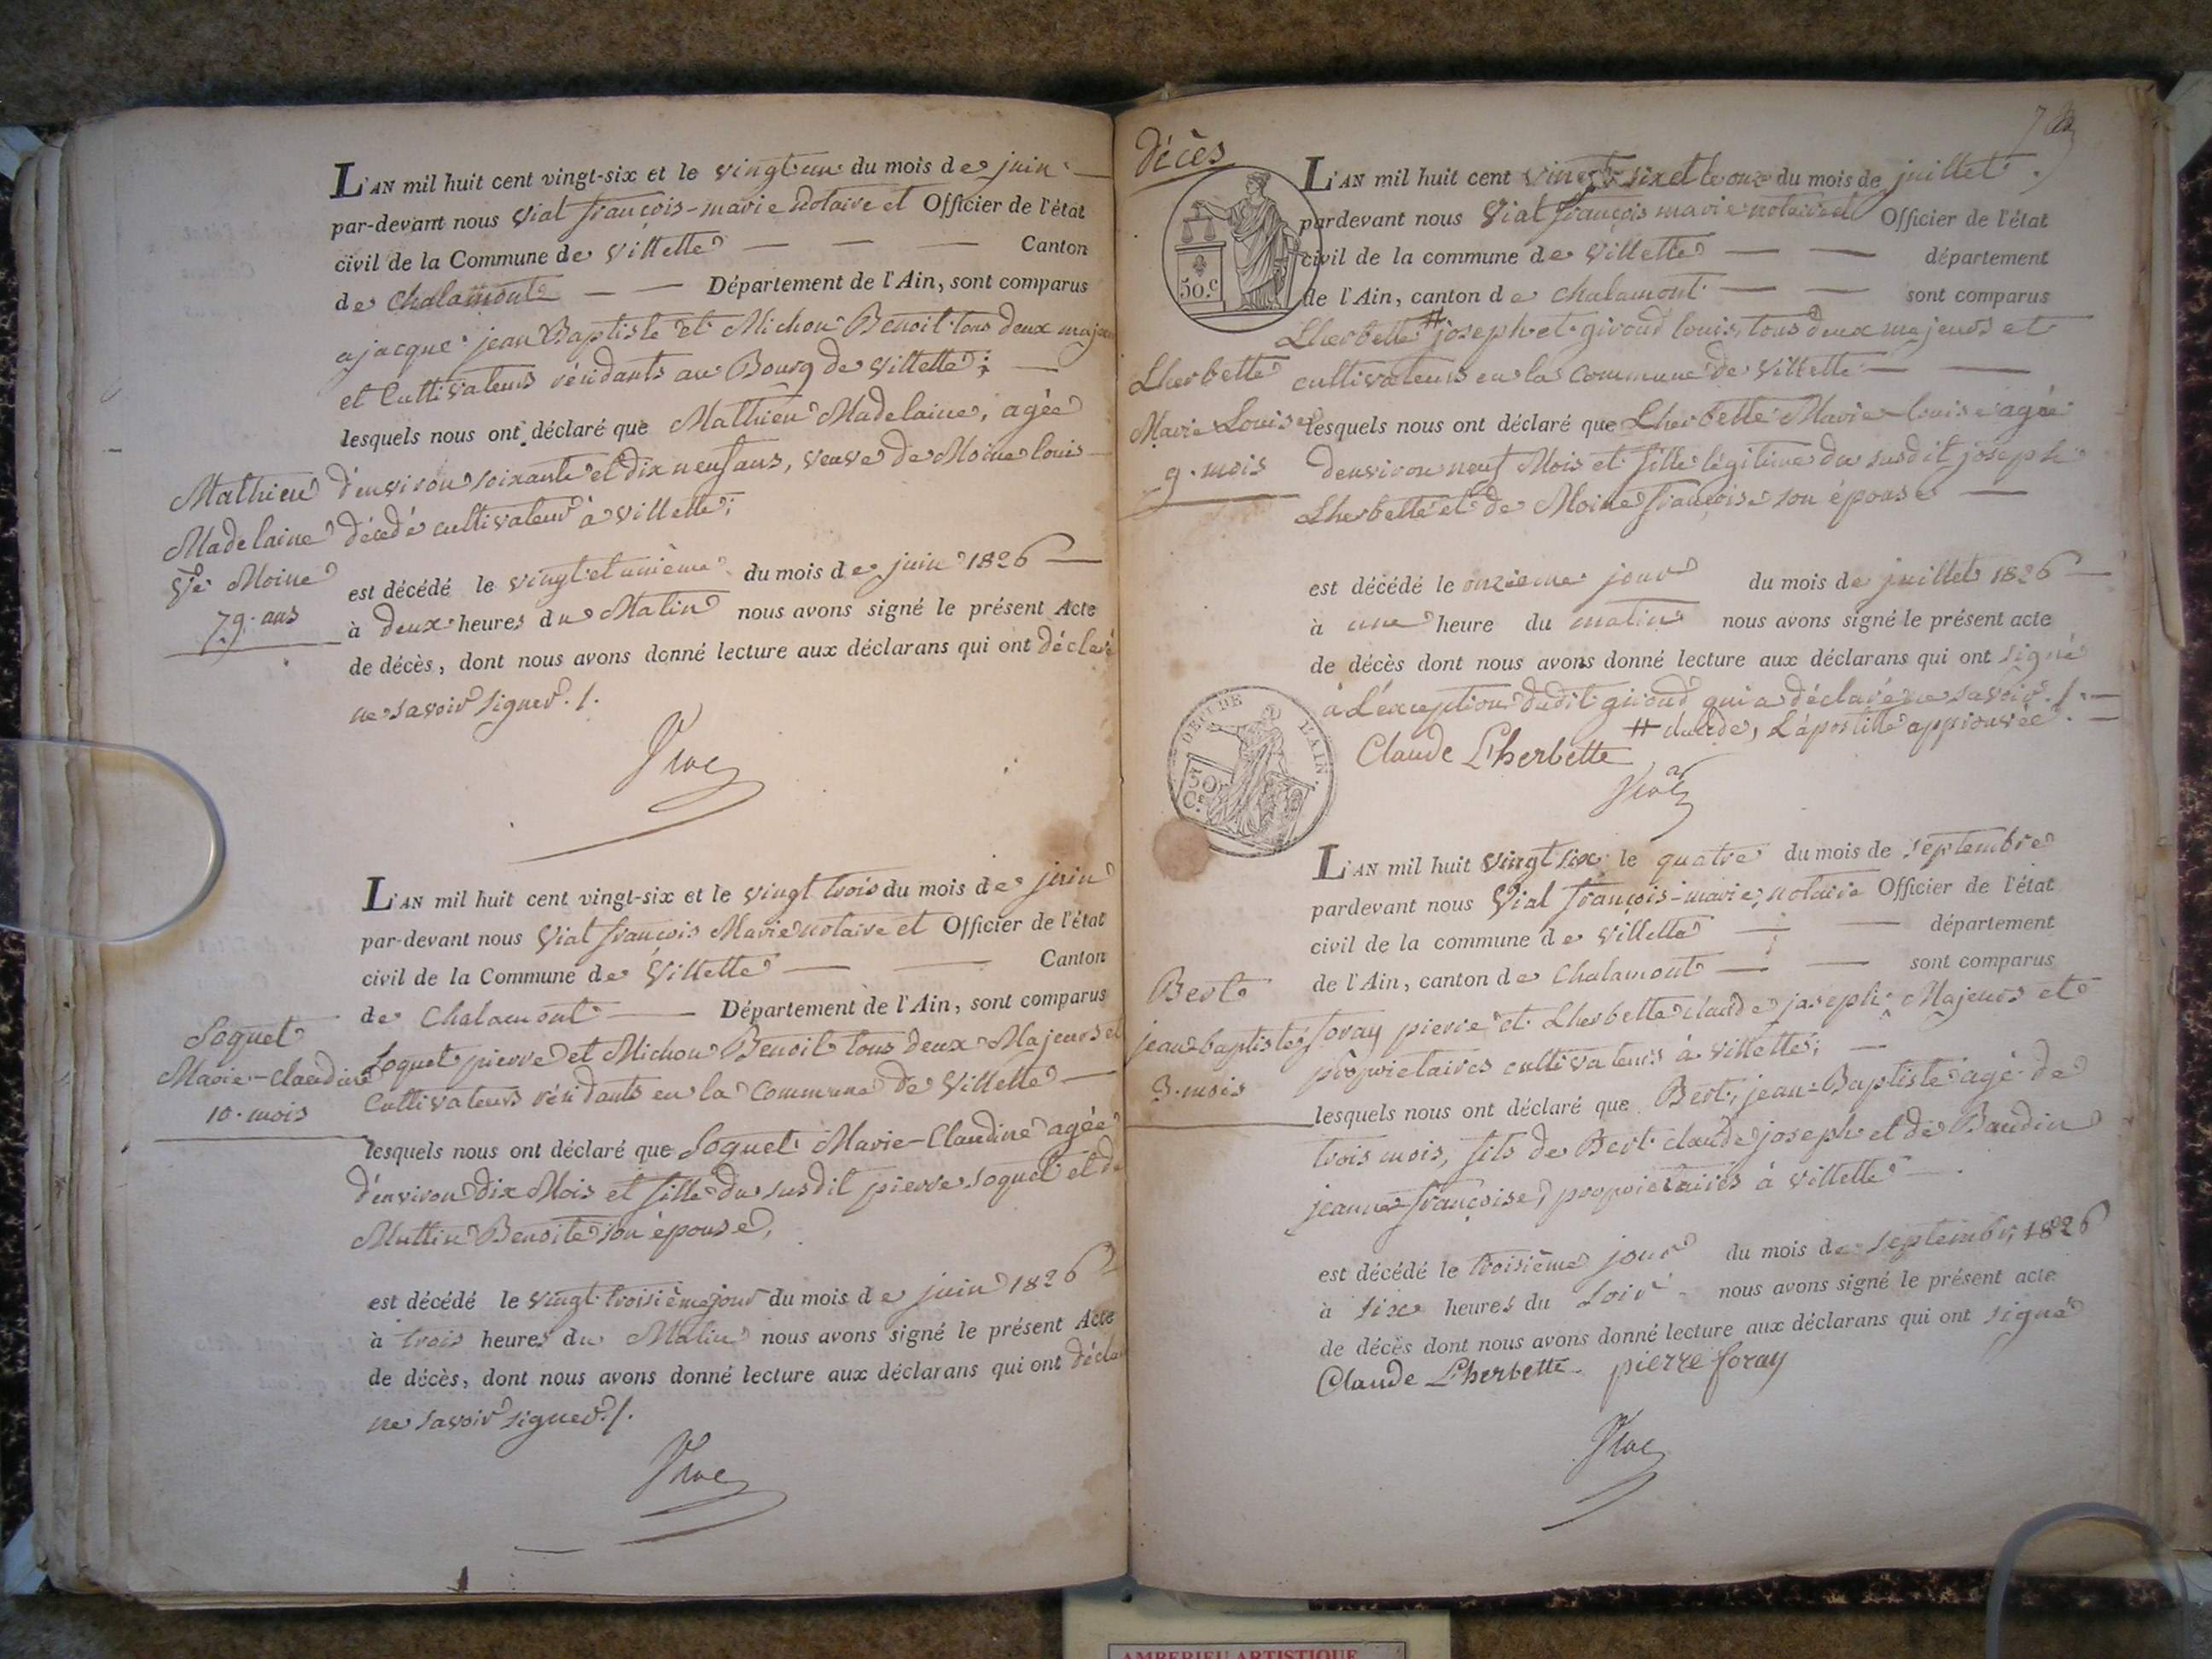 L'AN mil huit cent vingt-six et le vingt un du mois de juin
par-devant nous Vial françois-marie notaire et Officier de l'état
civil de la Commune de Villette — — — Canton
de Chalamont — — Département de l'Ain, sont comparus
ajacque jean Baptiste et Michon Benoit tous deux majeurs
et Cultivateurs résidants au Bourg de Villette; —
lesquels nous ont déclaré que Mathieu Madelaine, agée
Mathieu
d'environ soixante et dix neuf ans, veuve de Moine louis
Madelaine
décédé cultivateur à villette;
Ve Moine
79. ans
est décédé le vingt et unième du mois de juin 1826 —
à deux heures du Matin nous avons signé le présent Acte
de décès, dont nous avons donné lecture aux déclarans qui ont déclaré
ne savoir signer ./.
Vial
L'AN mil huit cent vingt-six et le vingt trois du mois de juin
par-devant nous Vial françois Marie notaire et Officier de l'état
civil de la Commune de Villette — — Canton
de Chalamont — Département de l'Ain, sont comparus
Soquet
Marie-Claudine
10. mois
Soquet pierre et Michon Benoit tous deux Majeurs et
Cultivateurs résidants en la Commune de Villette —
lesquels nous ont déclaré que Soquet Marie-Claudine agée
d'environ dix Mois et fille du susdit pierre soquet et de
Muttin Benoite son épouse,
est décédé le vingt troisième jour du mois de juin 1826
à trois heures du Matin nous avons signé le présent Acte
de décès, dont nous avons donné lecture aux déclarans qui ont déclaré
ne savoir signer ./.
Vial
décès
50.c
L'AN mil huit cent vingt six et le onze du mois de juillet.
pardevant nous Vial françois marie notaire et Officier de l'état
civil de la commune de Villette — — département
de l'Ain, canton de Chalamont — — sont comparus
Lherbette # joseph et giroud louis, tous deux majeurs et
Lherbette
Marie Louise
9. mois
cultivateurs en la Commune de Villette — —
lesquels nous ont déclaré que Lherbette Marie-louise agée
denviron neuf Mois et fille légitime du susdit joseph
Lherbette et de Moine françoise son épouse —
est décédé le onzieme jour du mois de juillet 1826 —
à une heure du matin nous avons signé le présent acte
de décès dont nous avons donné lecture aux déclarans qui ont signé
à L'exception dudit giroud qui a déclaré ne savoir ./. —
# claude, L'apostille approuvée ./. —
Claude Lherbette
Vial
DE L'AIN.
50
Cs
L'AN mil huit vingt six le quatre du mois de septembre
pardevant nous Vial françois-marie, notaire Officier de l'état
civil de la commune de Villette — — département
de l'Ain, canton de Chalamont — — sont comparus
Bert
jean-baptiste
3. mois
foray pierre et Lherbette claude joseph Majeurs et
propriétaires cultivateurs à villette; —
lesquels nous ont déclaré que Bert, jean-Baptiste agé de
trois mois, fils de Bert claude joseph et de Baudin
jeanne françoise, propriétaires à Villette —
est décédé le troisième jour du mois de septembr, 1826
à six heures du Soir - nous avons signé le présent acte
de décès dont nous avons donné lecture aux déclarans qui ont signé
Claude Lherbette pierre foray
Vial
AMBERIEU ARTISTIQUE